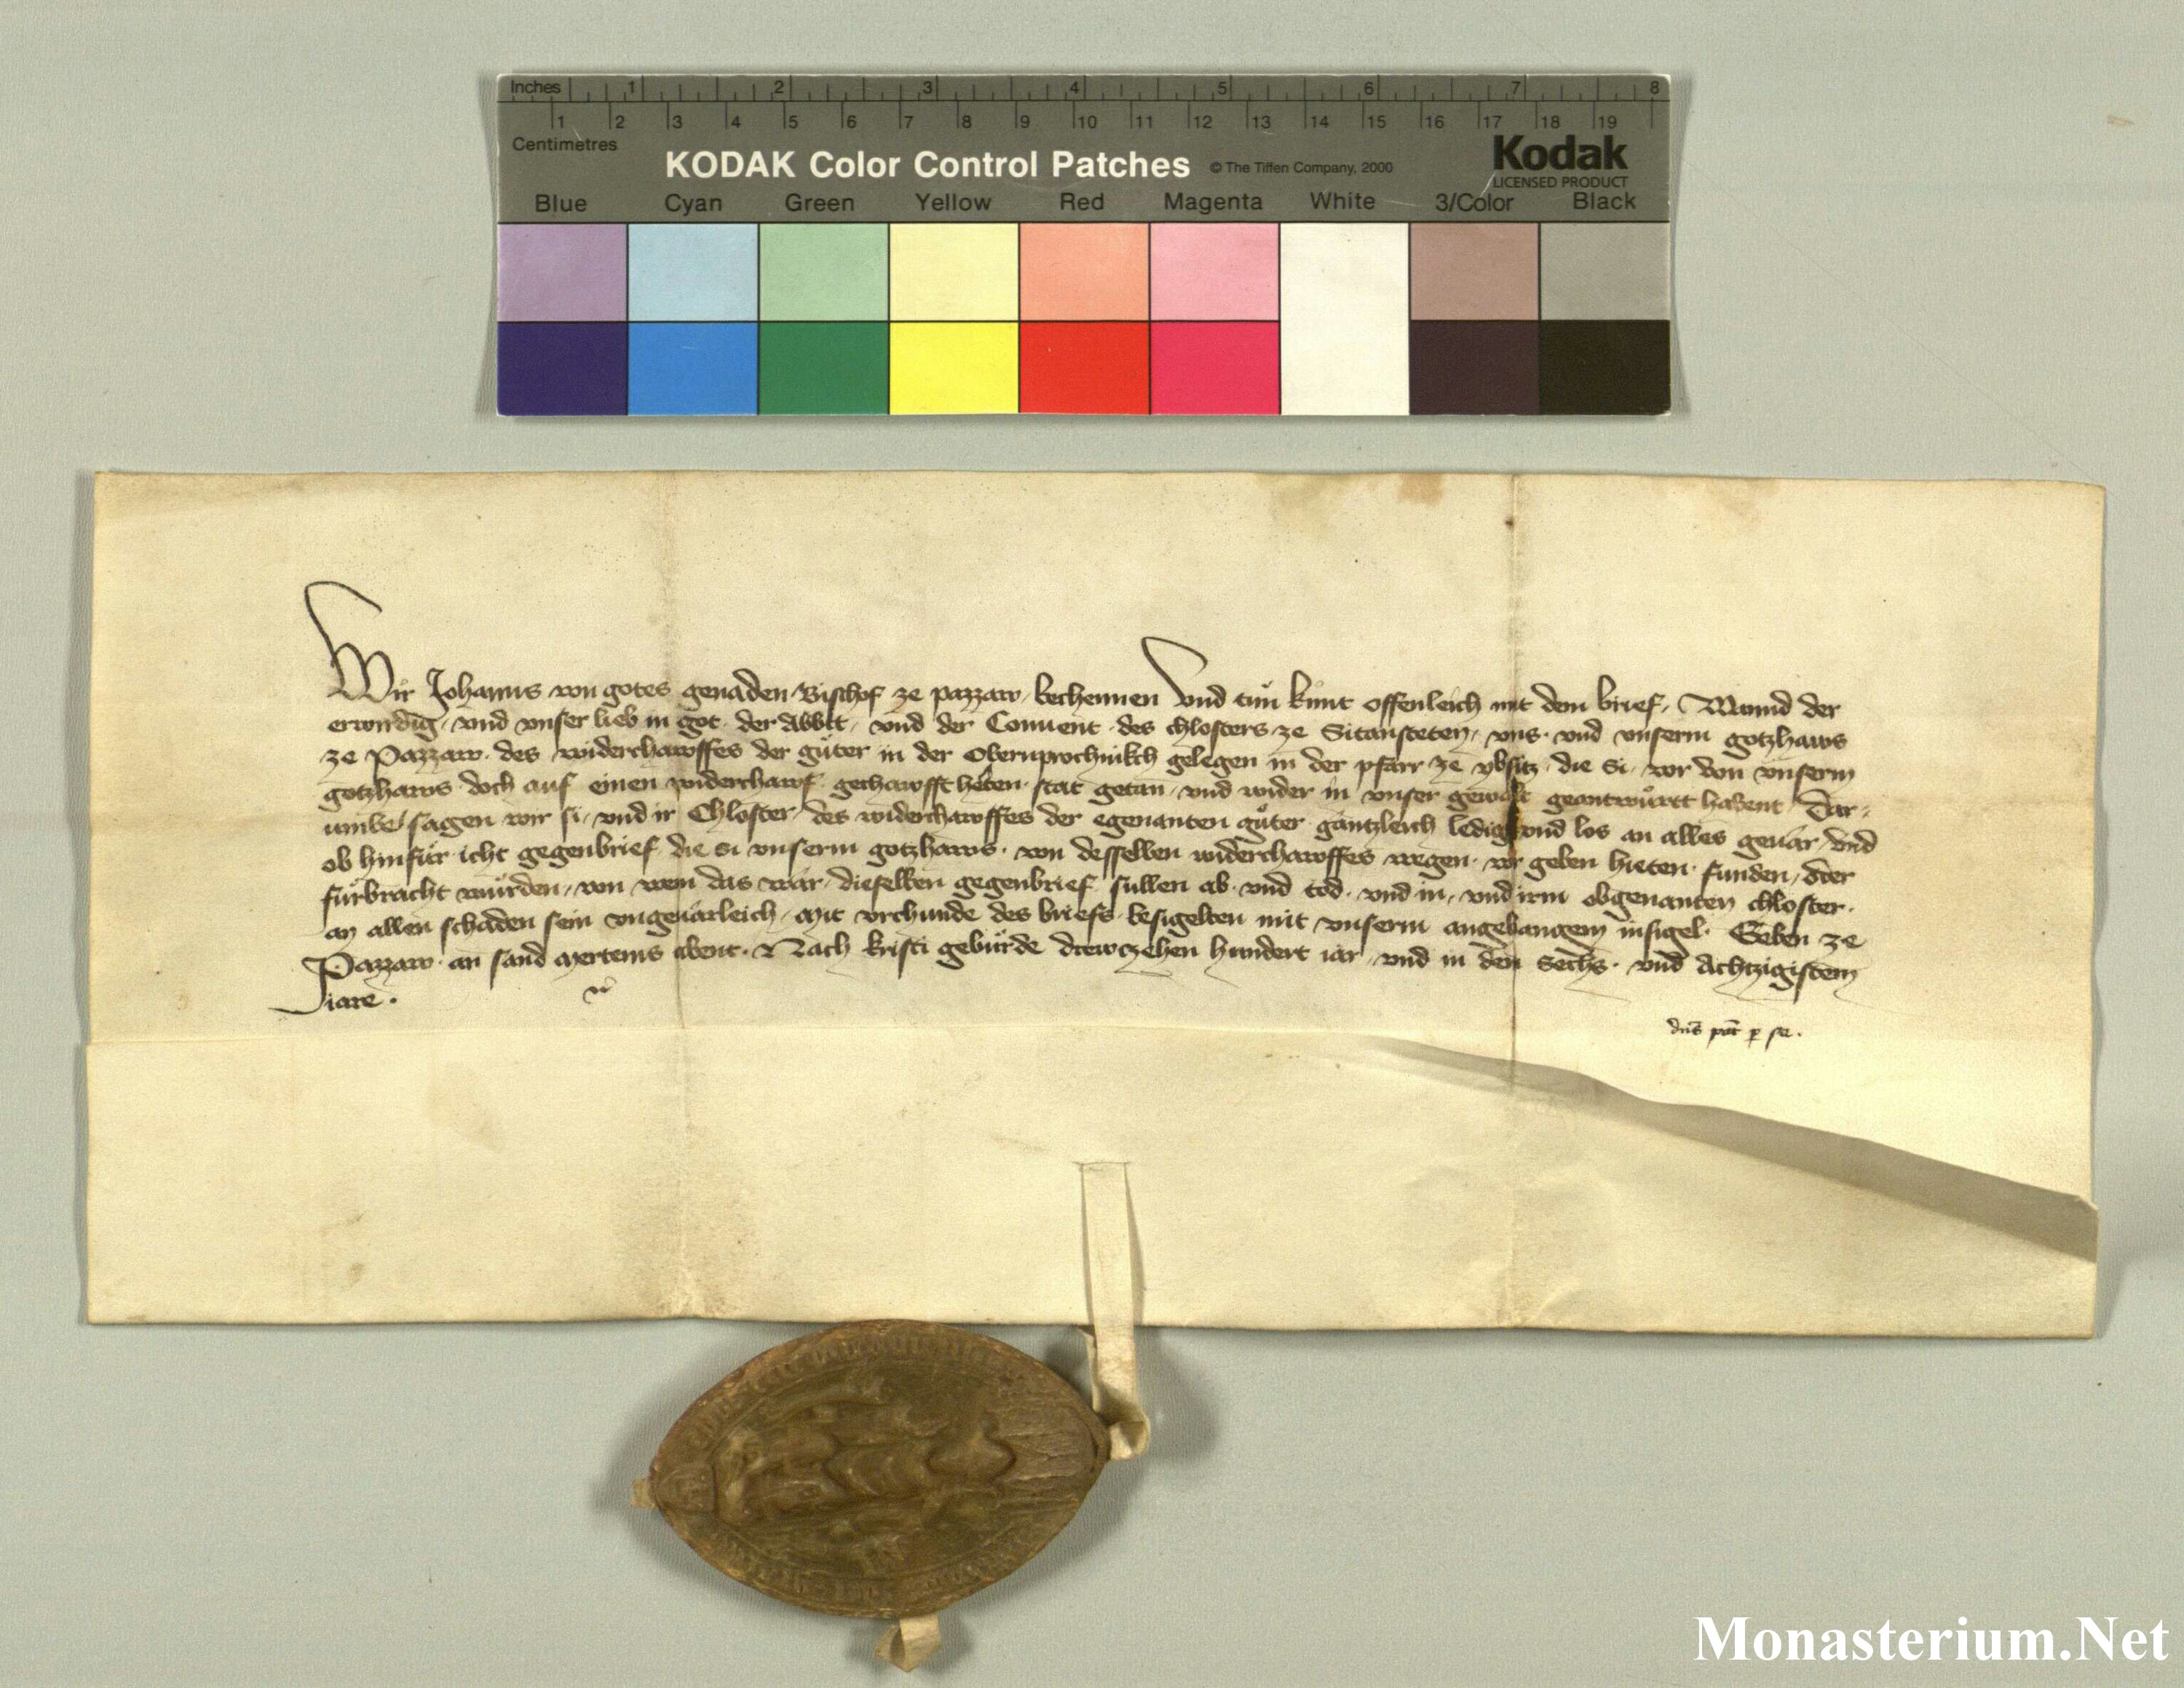 Inches 1 2 3 4 5 6 7 8
1 2 3 4 5 6 7 8 9 10 11 12 13 14 15 16 17 18 19
Centimetres
KODAK Color Control Patches © The Tiffen Company, 2000 Kodak
LICENSED PRODUCT
Blue Cyan Green Yellow Red Magenta White 3/Color Black
Wir Johanns von gotes genaden Bischof ze pazzaw bechennen Und tün kunt offenleich mit dem brief, Wannd der
erwirdig, vnd vnser lieb in got der Abbt, vnd der Conuent des chlosters ze Sitansteten, vns vnd vnserm gotzhaws
ze Pazzaw des widerchawffes der güter in der Obernprochnikch gelegen in der pfarr ze ybsitz die si vor von vnserm
gotzhaws doch auf einen widerchawf gechawfft heten stat getan vnd wider in vnser gewalt geantwürtt habent Dar-
umbe sagen wir si, vnd ir Chloster des widerchawffes der egenanten güter gantzleich ledig vnd los an alles geuar, vnd
ob hinfür icht gegenbrief die si vnserm gotzhaws von desselben widerchawffes wegen vor geben hieten funden, oder
fürbracht würden, von wem das wär, dieselben gegenbrief süllen ab vnd tod vnd in, vnd irm obgenanten chloster
an allen schaden sein vngeuarleich, Mit vrchunde des briefs besigelten mit vnserm anhangem insigel Geben ze
Pazzaw an sand Mertens abent Nach kristi gebürde drewczehen hundert iar vnd in dem Sechs vnd Achtzigistem
iare.
dns pat p se.
Monasterium.Net